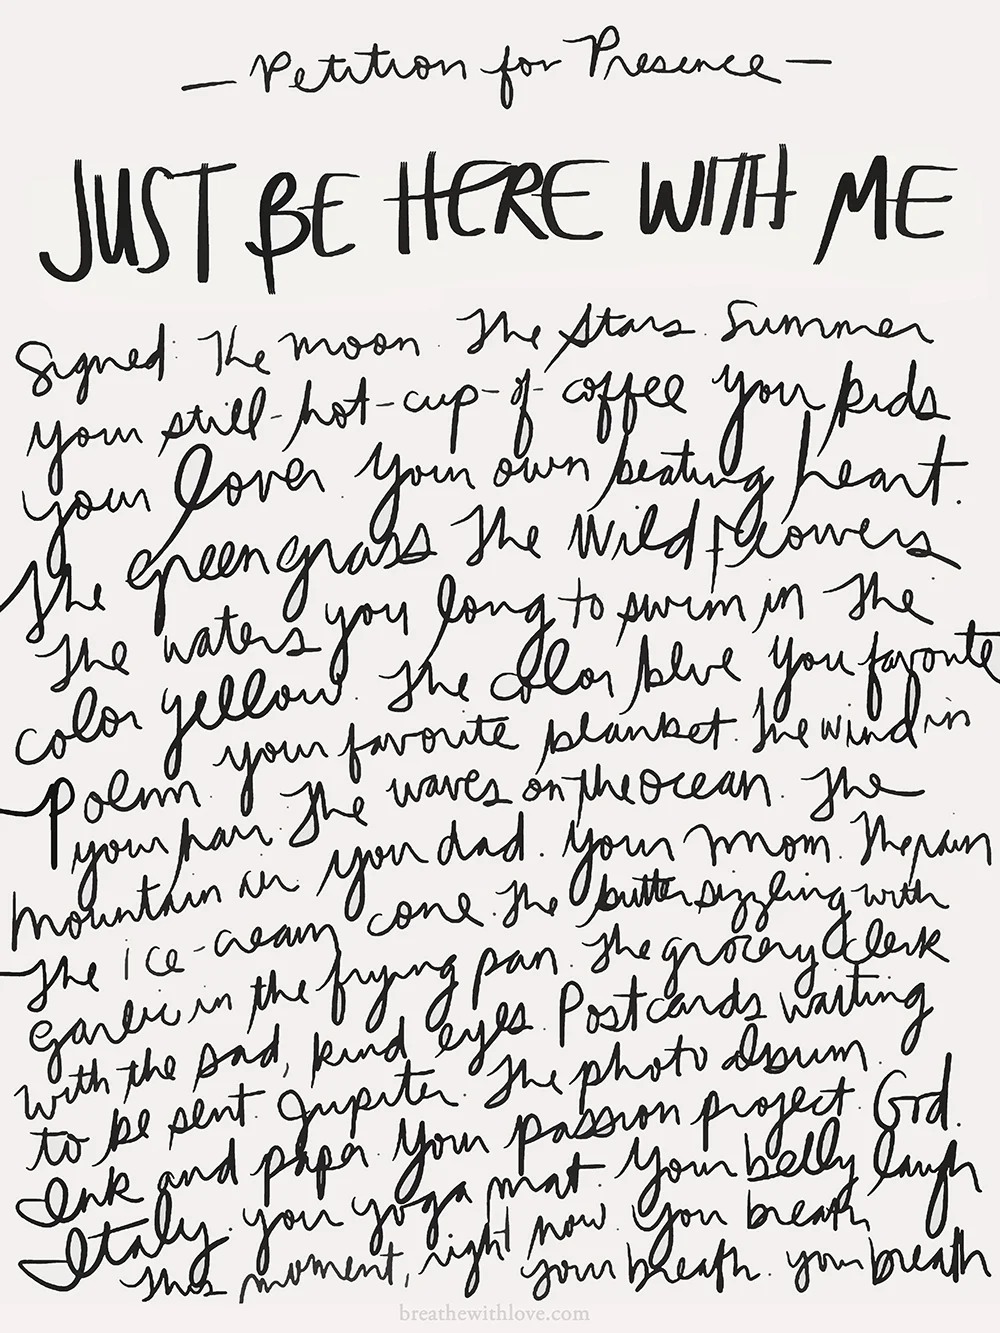 — Petition for Presence —
JUST BE HERE WITH ME
Signed: The moon. The stars. Summer
your still-hot-cup-of-coffee your kids
your lover your own beating heart.
The green grass The wildflowers
The waters you long to swim in The
color yellow. The color blue your favorite
Poem. your favorite blanket. The wind in
your hair. The waves on the ocean. The
mountain air your dad. your mom. The rain
The ice-cream cone. The butter sizzling with
garlic in the frying pan. The grocery clerk
with the sad, kind eyes. Postcards waiting
to be sent. Jupiter. The photo album.
Ink and paper. Your passion project. God.
Italy. your yoga mat. Your belly laugh
This moment, right now. Your breath
your breath. your breath
breathewithlove.com